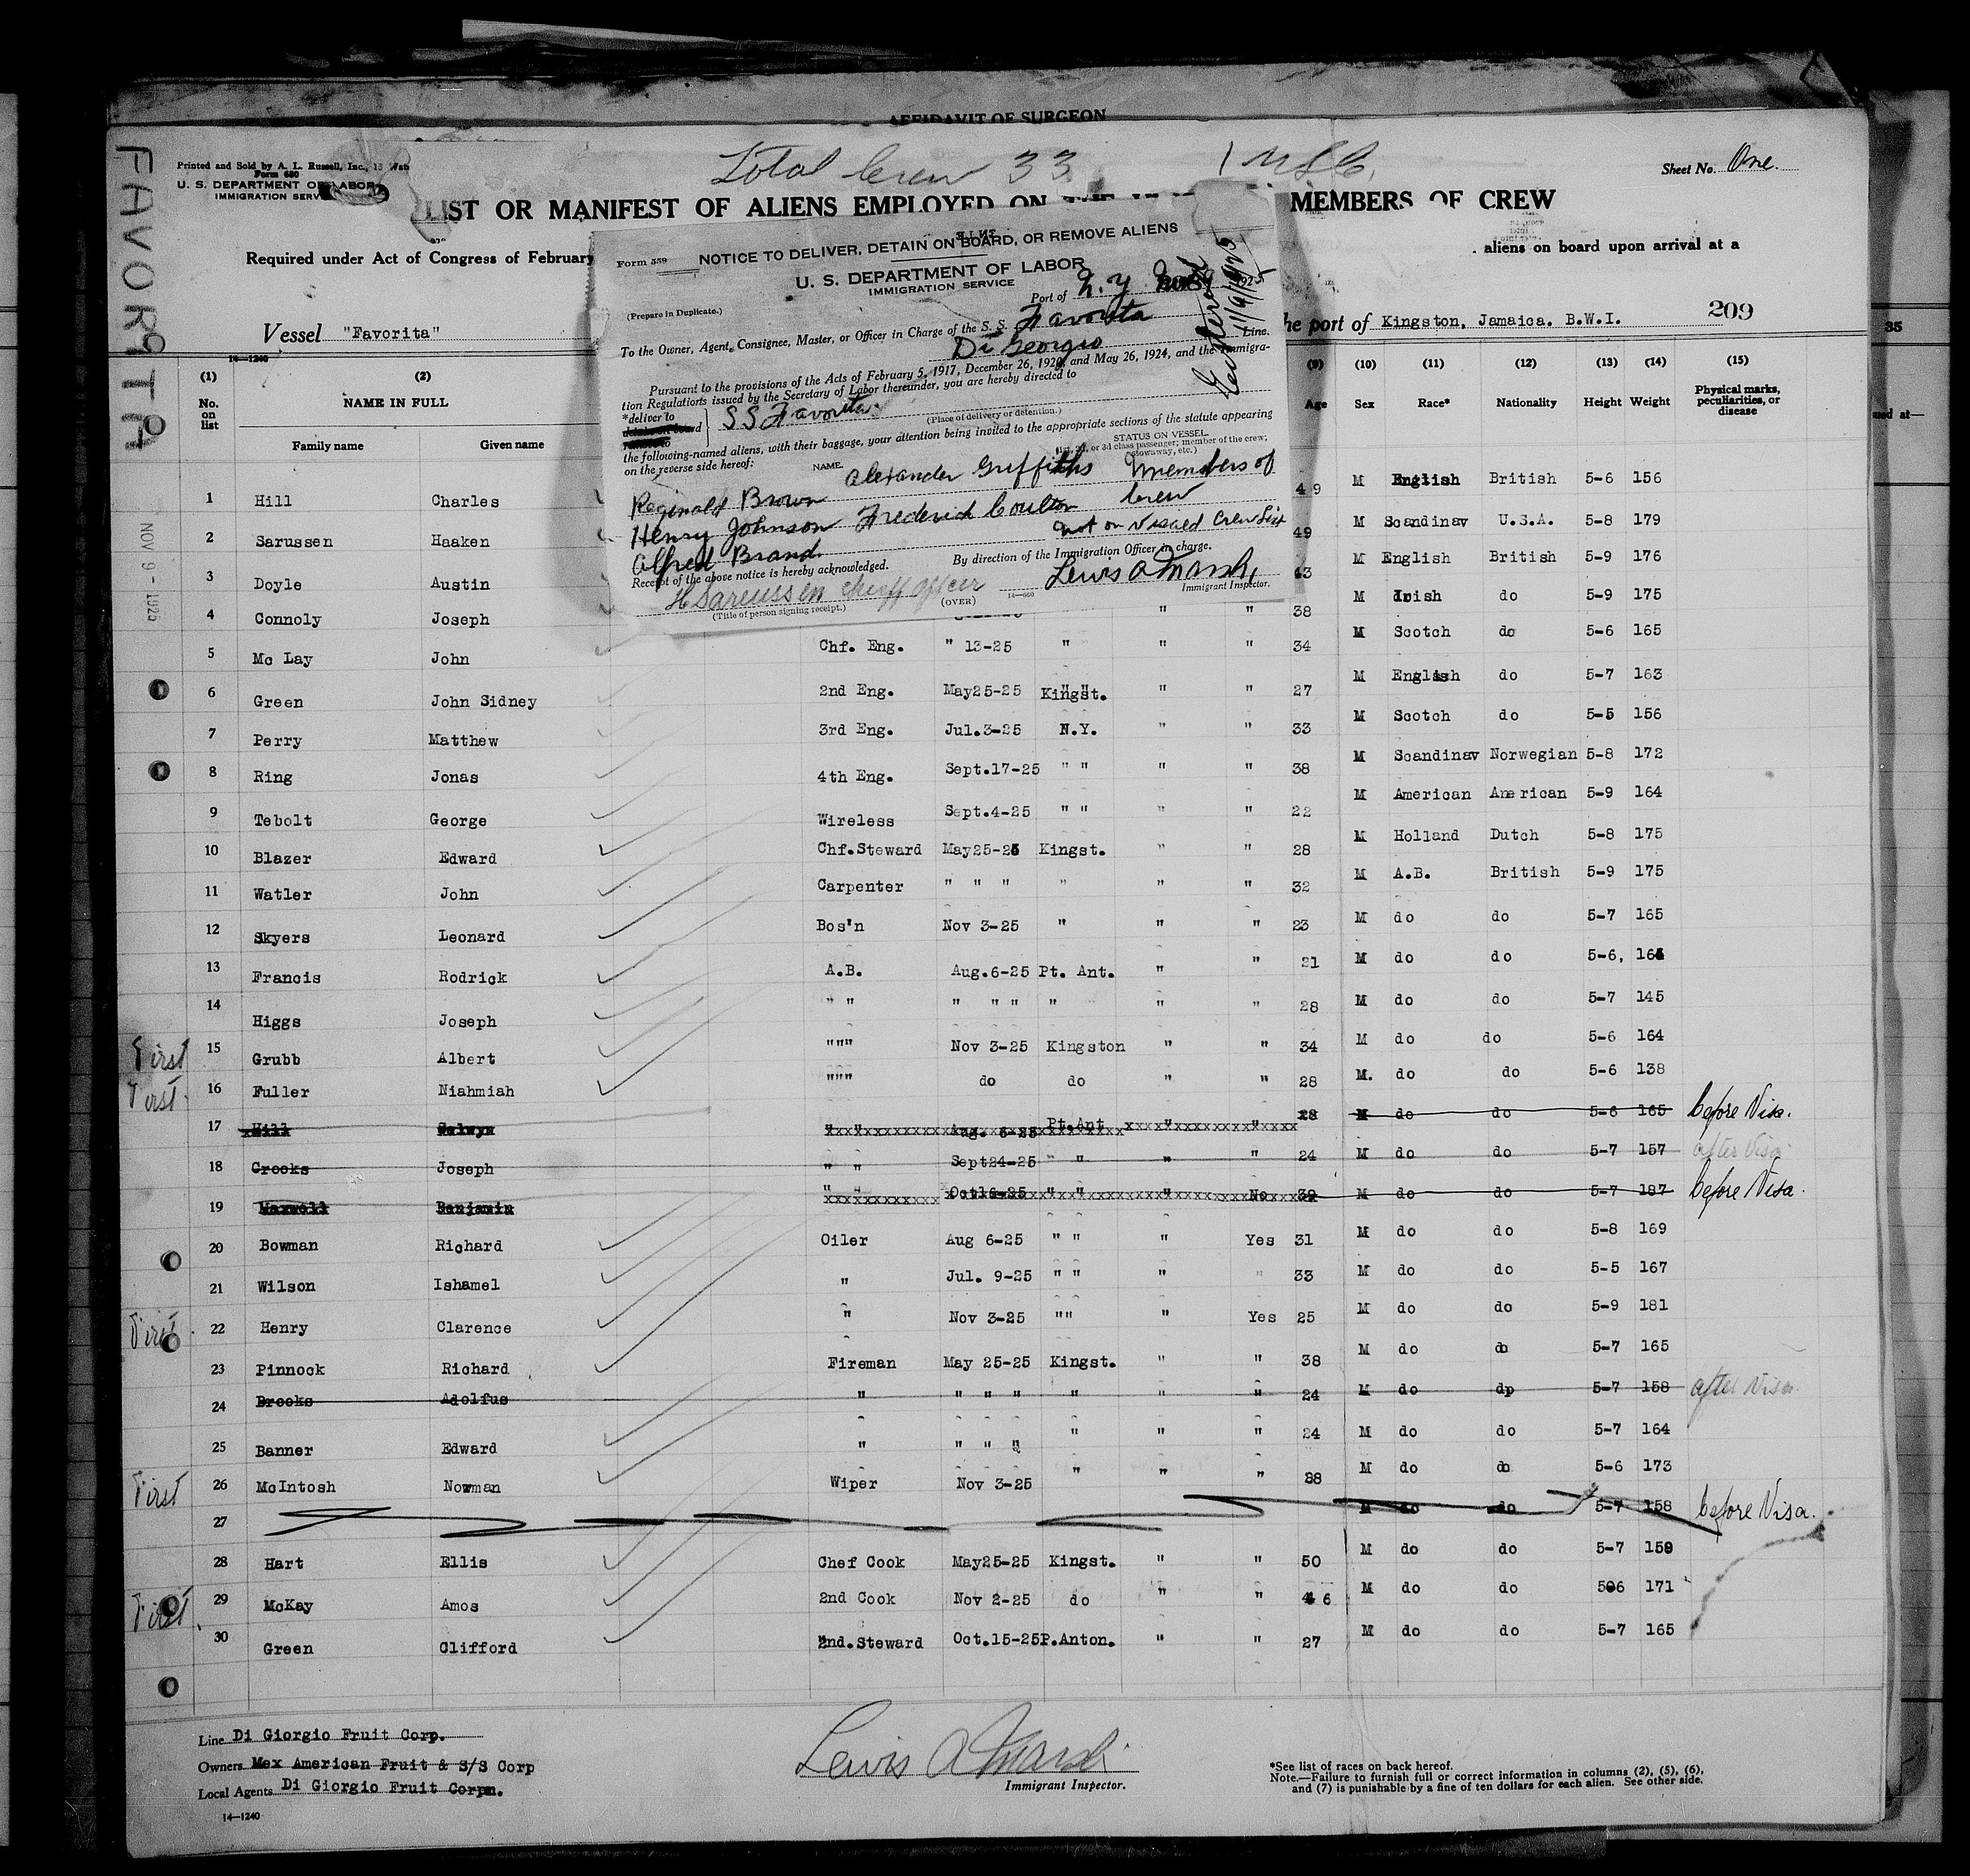 AFFIDAVIT OF SURGEON
FAVORITA
Printed and Sold by A. L. Russell, Inc., 13
Form 680
U. S. DEPARTMENT OF LABOR
IMMIGRATION SERVICE
Total Crew 33
Sheet No. One.
LIST OR MANIFEST OF ALIENS EMPLOYED ON MEMBERS OF CREW
Required under Act of Congress of February
aliens on board upon arrival at a
Vessel "Favorita"
the port of Kingston, Jamaica. B.W.I.
209
35
14—1240
Form 559
NOTICE TO DELIVER, DETAIN ON BOARD, OR REMOVE ALIENS
U. S. DEPARTMENT OF LABOR
IMMIGRATION SERVICE
(Prepare in Duplicate.)
Port of N.Y.
To the Owner, Agent, Consignee, Master, or Officer in Charge of the S. S. Favorita
Di Georgio Line.
Pursuant to the provisions of the Acts of February 5, 1917, December 26, 1920, and May 26, 1924, and the Immigra-
tion Regulations issued by the Secretary of Labor thereunder, you are hereby directed to
*deliver to
SS Favorita.
(Place of delivery or detention.)
the following-named aliens, with their baggage, your attention being invited to the appropriate sections of the statute appearing
on the reverse side hereof:
NAME.
STATUS ON VESSEL
or 3d class passenger; member of the crew;
stowaway, etc.)
Alexander Griffiths Members of
Reginald Brown crew
Henry Johnson Frederick Coulton not on visaed Crew List
Alfred Brand.
By direction of the Immigration Officer in charge.
Receipt of the above notice is hereby acknowledged.
Lewis A Marsh,
Immigrant Inspector.
H Sareussen chieff officer
(Title of person signing receipt.)
(OVER)
14—660
(1) (2) (9) (10) (11) (12) (13) (14) (15)
No. on list
NAME IN FULL
Family name Given name
Age Sex Race* Nationality Height Weight
Physical marks, peculiarities, or disease
NOV 9 - 1925
1 Hill Charles 49 M English British 5-6 156
2 Sarussen Haaken 49 M Scandinav U.S.A. 5-8 179
3 Doyle Austin 43 M English British 5-9 176
4 Connoly Joseph " " 38 M Irish do 5-9 175
5 Mc Lay John Chf. Eng. " 13-25 " " " 34 M Scotch do 5-6 165
6 Green John Sidney 2nd Eng. May25-25 Kingst. " " 27 M English do 5-7 163
7 Perry Matthew 3rd Eng. Jul.3-25 N.Y. " " 33 M Scotch do 5-5 156
8 Ring Jonas 4th Eng. Sept.17-25 " " " " 38 M Scandinav Norwegian 5-8 172
9 Tebolt George Wireless Sept.4-25 " " " " 22 M American American 5-9 164
10 Blazer Edward Chf.Steward May25-25 Kingst. " " 28 M Holland Dutch 5-8 175
11 Watler John Carpenter " " " " " " 32 M A.B. British 5-9 175
12 Skyers Leonard Bos'n Nov 3-25 " " " 23 M do do 5-7 165
13 Francis Rodrick A.B. Aug.6-25 Pt. Ant. " " 21 M do do 5-6, 164
14 Higgs Joseph " " " " " " " " 28 M do do 5-7 145
First 15 Grubb Albert """ Nov 3-25 Kingston " " 34 M do do 5-6 164
First 16 Fuller Niahmiah """ do do " " 28 M. do do 5-6 138
17 Hill Selwyn " " Aug. 6-25 Pt.Ant " " 28 M do do 5-6 165 before Visa.
18 Crooks Joseph " " Sept24-25 " " " " 24 M do do 5-7 157 after Visa
19 Maxwell Benjamin " " Oct16-25 " " " No 39 M do do 5-7 187 before Visa.
20 Bowman Richard Oiler Aug 6-25 " " " Yes 31 M do do 5-8 169
21 Wilson Ishamel " Jul. 9-25 " " " " 33 M do do 5-5 167
First 22 Henry Clarence " Nov 3-25 "" " Yes 25 M do do 5-9 181
23 Pinnock Richard Fireman May 25-25 Kingst. " " 38 M do do 5-7 165
24 Brooks Adolfus " " " " " " " 24 M do do 5-7 158 after Visa
25 Banner Edward " " " " " " " 24 M do do 5-7 164
First 26 McIntosh Nowman Wiper Nov 3-25 " " " 38 M do do 5-6 173
27 M do do 5-7 158 before Visa.
28 Hart Ellis Chef Cook May25-25 Kingst. " " 50 M do do 5-7 159
First 29 McKay Amos 2nd Cook Nov 2-25 do " " 46 M do do 506 171
30 Green Clifford 2nd.Steward Oct.15-25 P.Anton. " " 27 M do do 5-7 165
Line Di Giorgio Fruit Corp.
Owners Mex American Fruit & S/S Corp
Local Agents Di Giorgio Fruit Corpn.
14—1240
Lewis A Marsh
Immigrant Inspector.
*See list of races on back hereof.
Note.—Failure to furnish full or correct information in columns (2), (5), (6),
and (7) is punishable by a fine of ten dollars for each alien. See other side.